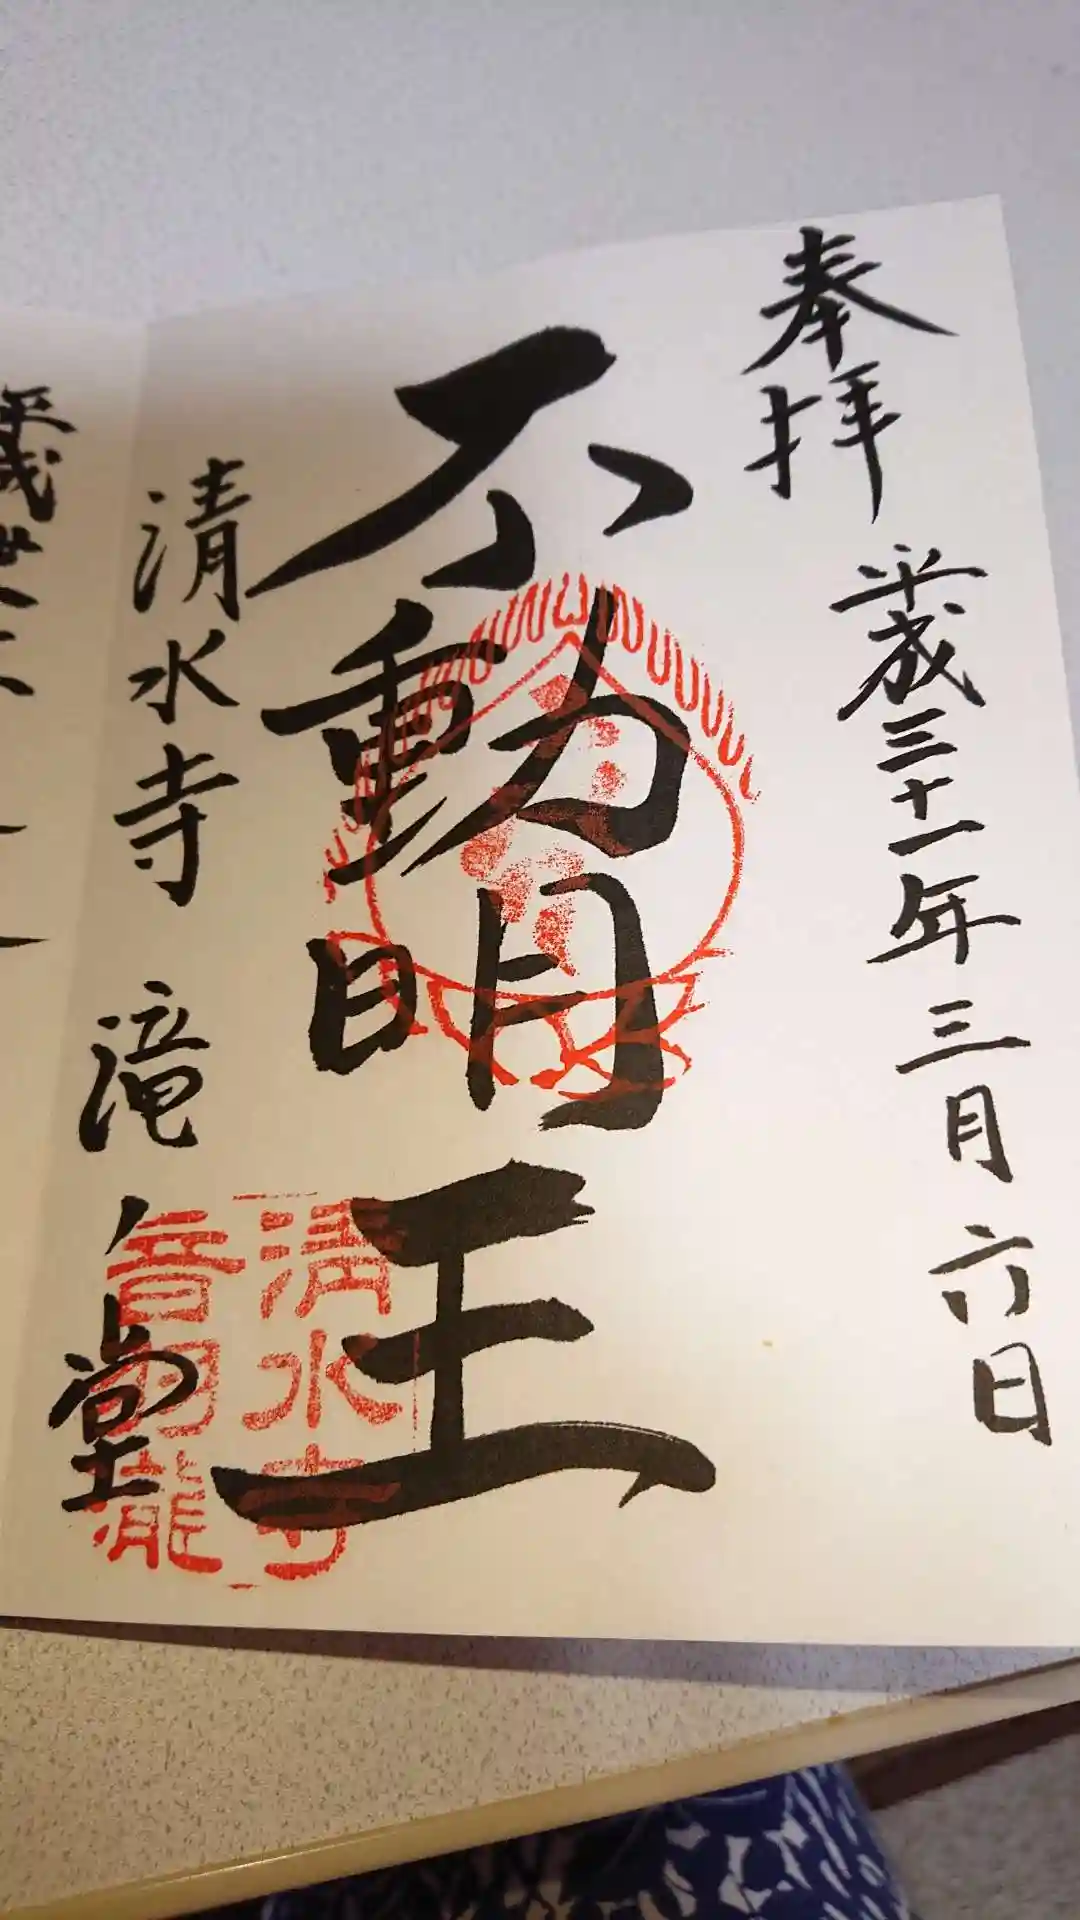 奉拝
平成三十一年三月六日
不動明王
清水寺 滝ノ堂
清水寺
音羽瀧
平成